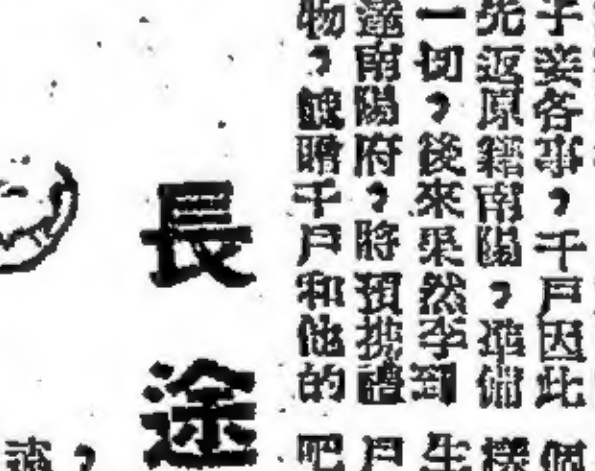 子妾各事，千戶因此
先返原籍南陽，準備
一切。後來果然李到
遂南陽府，將預携禮
物，餽贈千戶和他的
個
樣
生
戶
吧
長途
，